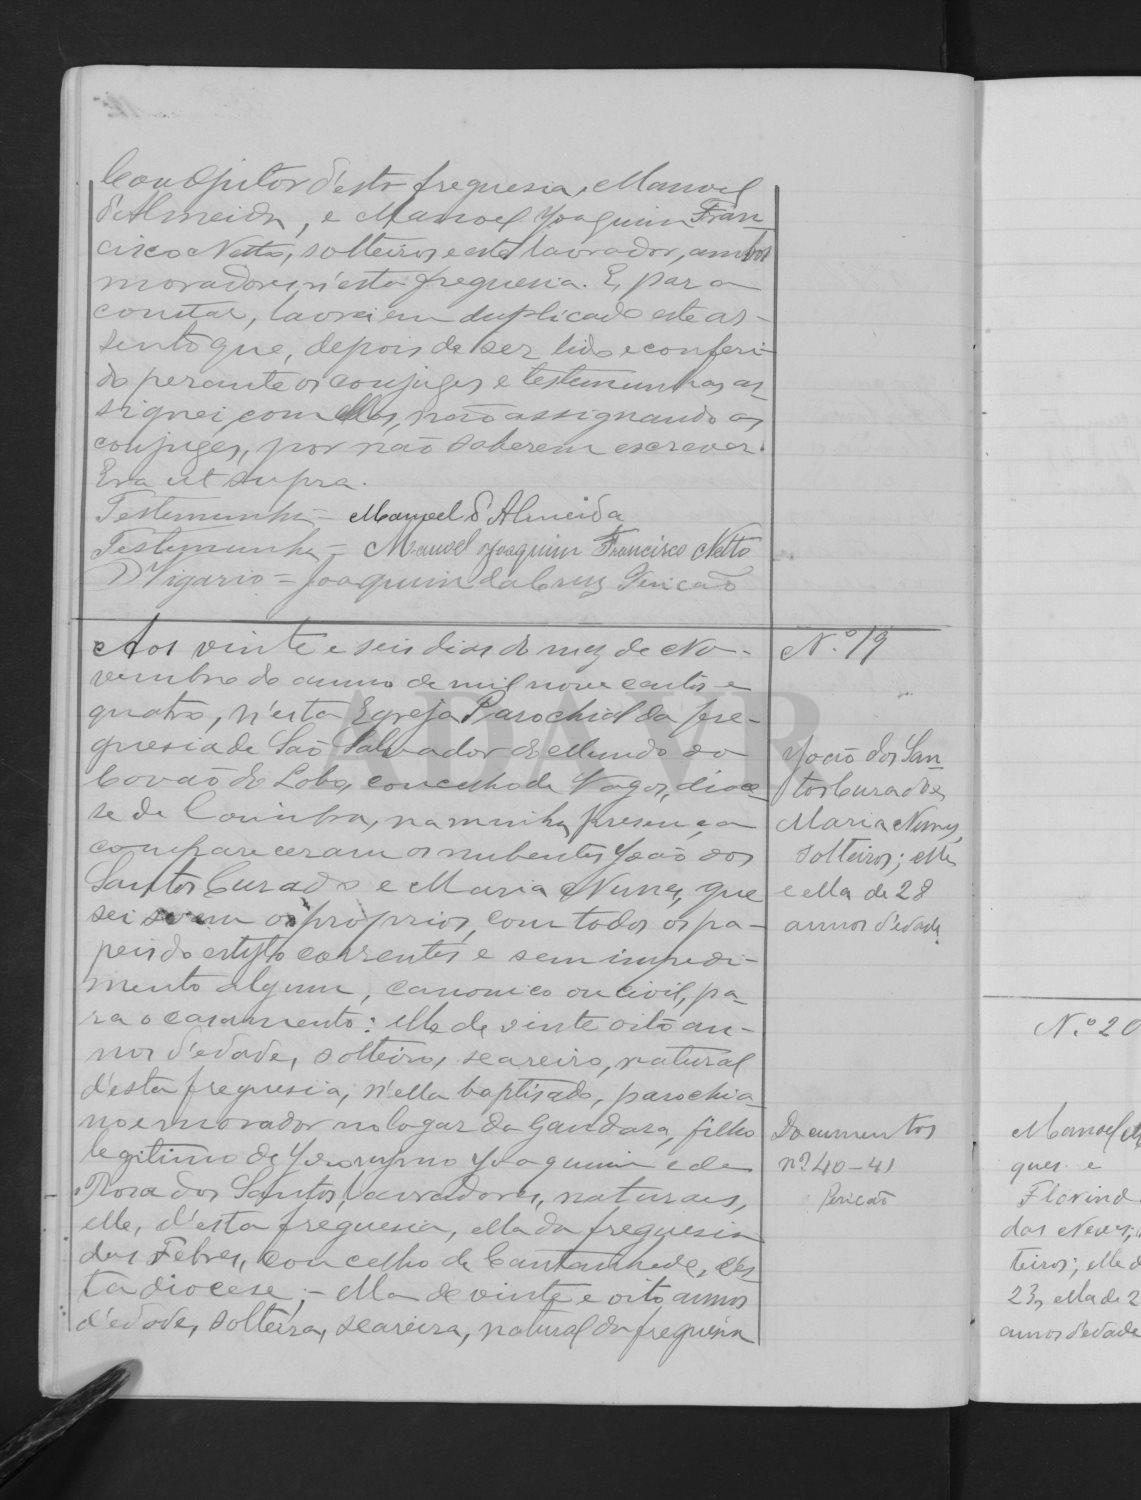 Coadjutor d'esta freguesia, Manoel
d'Almeida, e Manoel Joaquim Fran-
cisco Netto, solteiros e este lavrador, ambos
moradores n'esta freguesia. E, para
constar, lavrei em duplicado este as-
sento que, depois de ser lido e conferi-
do perante os conjuges e testemunhas as-
signei com ellas, não assignando os
conjuges, por não saberem escrever.
Era ut supra.
Testemunha = Manoel d'Almeida
Testemunha = Manoel Joaquim Francisco Netto
O Vigario = Joaquim da Cruz Pericão
Aos vinte e seis dias do mez de No-
vembro do anno de mil nove centos e
quatro, n'esta Egreja Parochial da fre-
guesia de São Salvador do Mundo do
Covão do Lobo, concelho de Vagos, dioce-
se de Coimbra, na minha presença
compareceram os nubentes João dos
Santos Curado e Maria Nunes, que
sei serem os proprios, com todos os pa-
peis do estylo correntes e sem impedi-
mento algum, canonico ou civil, pa-
ra o casamento: elle de vinte oito an-
nos d'edade, solteiro, seareiro, natural
d'esta freguesia, n'ella baptisado, parochia-
no e morador no logar da Gandara, filho
legitimo de Jeronymo Joaquim e de
Rosa dos Santos, lavradores, naturaes,
elle, d'esta freguesia, ella da freguesia
das Febres, concelho de Cantanhede, d'es-
ta diocese; - ella de vinte e oito annos
d'edade, solteira, seareira, natural da freguesia
N.º 19
João dos San-
tos Curado e
Maria Nunes,
solteiros; elle
e ella de 28
annos d'edade.
Documentos
nº 40-41
Pericão
N.º 20
Manoel
ques e
Florind
das Neves;
teiros; elle d
23, ella de 2
annos d'edade
ADAVR